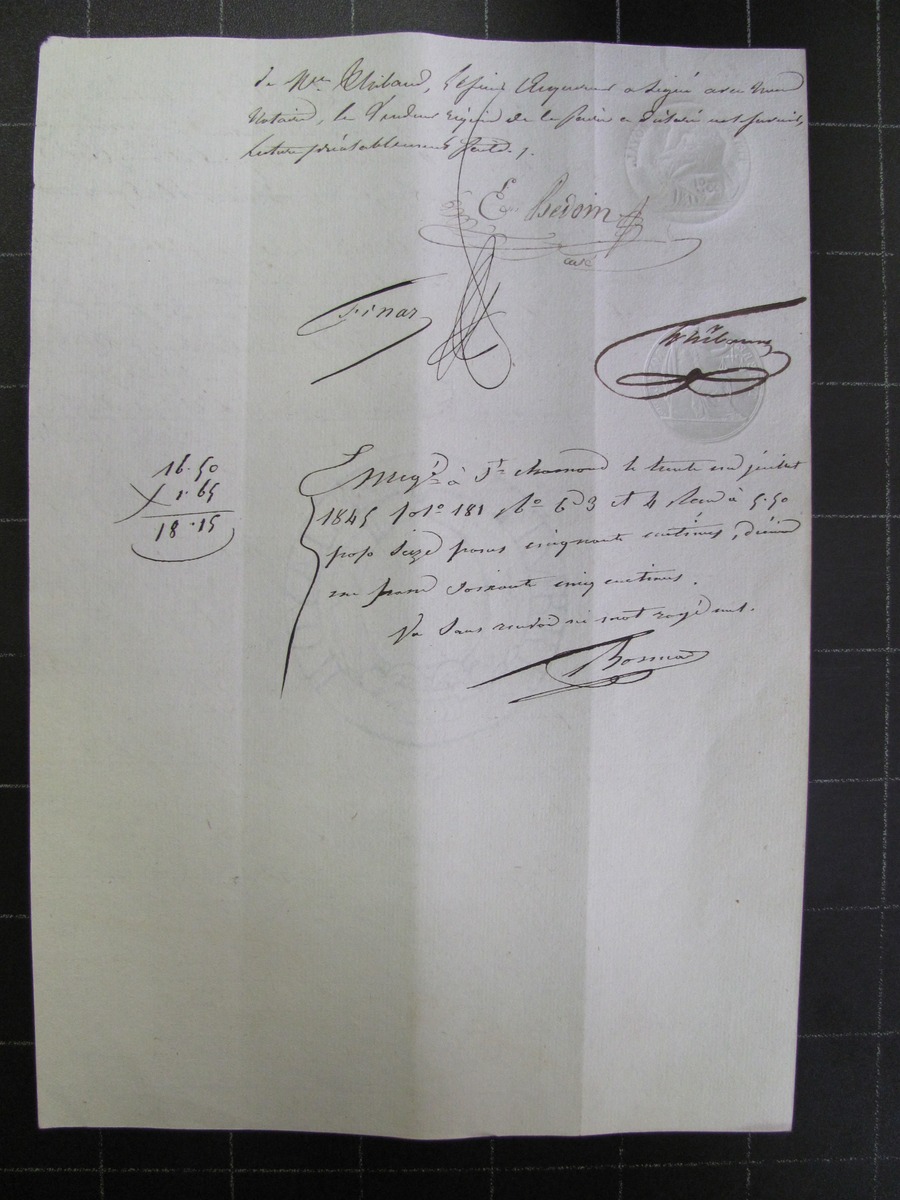 de Mre Thibaud, le sieur Acquéreur a signé avec nous
Notaire, le Vendeur requis de le faire a déclaré ne savoir,
lecture préalablement faite.
Bedoin
Finas
Thibaud
16.50
1.65
18.15
Enregé à St chamond le trente un juillet
1845 folo 181 Ro Cd 3 et 4 Reçu à 5.50
pr % seize francs cinquante centimes, décime
un franc soixante cinq centimes.
Va sans renvoi ni mot rayé nul.